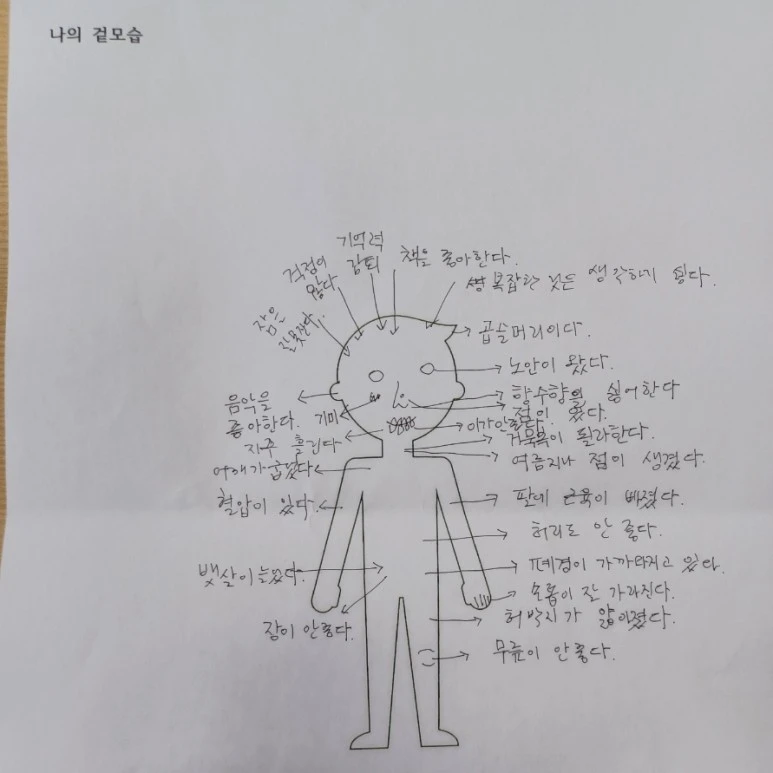 나의 겉모습
기억력
감퇴
책을 좋아한다.
걱정이
많다
복잡한 것은 생각하기 싫다.
잠을
잘못잔다.
곱슬머리이다.
노안이 왔다.
음악을
좋아한다.
향수향을 싫어한다
기미
점이 있다.
이가안좋다.
자주 흘린다
거북목이 될라한다.
여름지나 점이 생겼다.
어깨가굽었다
혈압이 있다.
팔에 근육이 빠졌다.
허리도 안 좋다.
뱃살이늘었다.
폐경이 가까워지고 있다.
손톱이 잘 갈라진다.
장이 안좋다.
허벅지가 얇아졌다.
무릎이 안좋다.